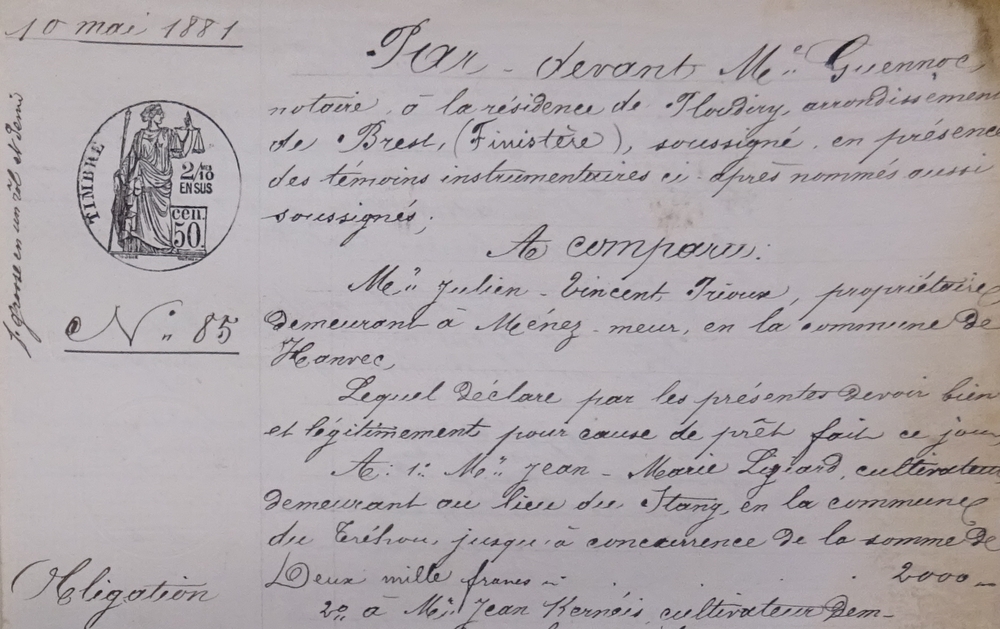 10 mai 1881
TIMBRE
2/10
EN SUS
cen.
50.
N° 85
Obligation
Par-devant Me Guennoc,
notaire à la résidence de Ploudiry, arrondissement
de Brest, (Finistère), soussigné, en présence
des témoins instrumentaires ci-après nommés aussi
soussignés;
A comparu:
Mr Julien-Vincent Trioux, propriétaire
demeurant à Ménez-meur, en la commune de
Hanvec,
Lequel déclare par les présentes devoir bien
et légitimement pour cause de prêt fait ce jour
A: 1° Mr Jean-Marie Ligiard, cultivateur
demeurant au lieu du Stang, en la commune
du Tréhou, jusqu'à concurrence de la somme de
Deux mille francs 2000
2° à Mr Jean Kernéis, cultivateur dem-